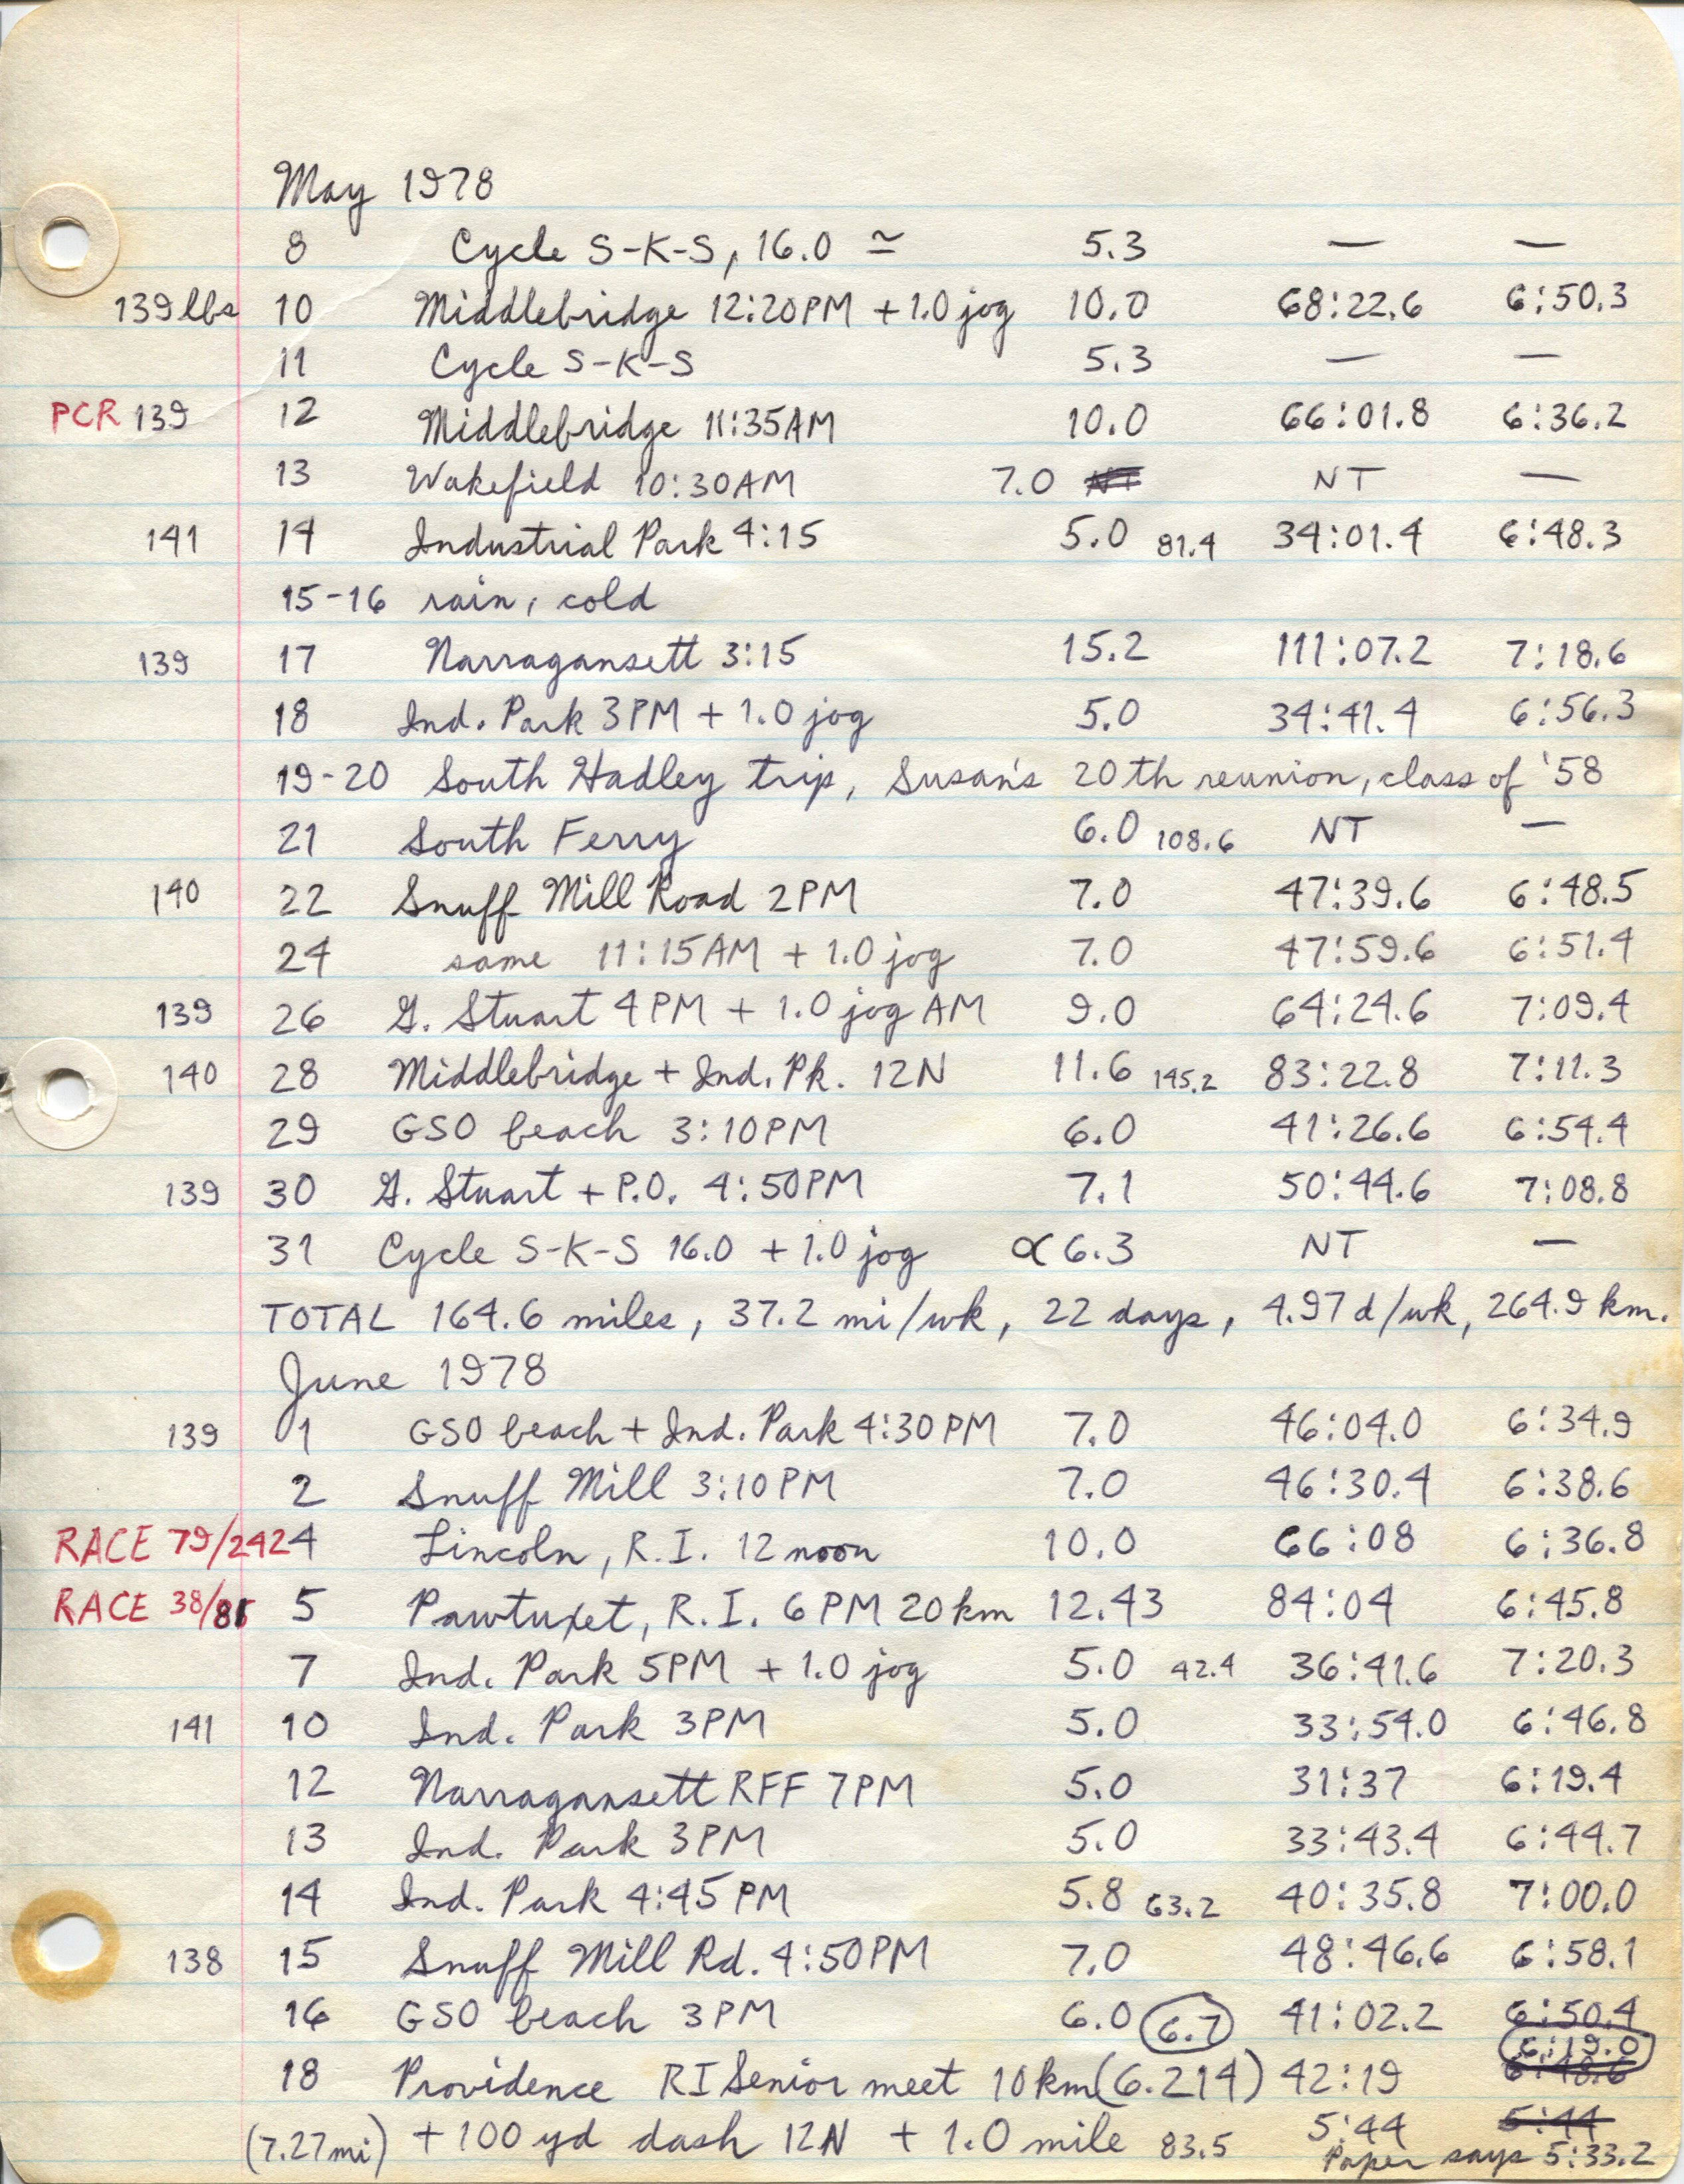 May 1978
8 Cycle S-K-S, 16.0 ≃ 5.3 — —
139 lbs 10 Middlebridge 12:20PM + 1.0 jog 10.0 68:22.6 6:50.3
11 Cycle S-K-S 5.3 — —
PCR 139 12 Middlebridge 11:35AM 10.0 66:01.8 6:36.2
13 Wakefield 10:30AM 7.0 NT NT —
141 14 Industrial Park 4:15 5.0 81.4 34:01.4 6:48.3
15-16 rain, cold
139 17 Narragansett 3:15 15.2 111:07.2 7:18.6
18 Ind. Park 3PM + 1.0 jog 5.0 34:41.4 6:56.3
19-20 South Hadley trip, Susan's 20th reunion, class of '58
21 South Ferry 6.0 108.6 NT —
140 22 Snuff Mill Road 2PM 7.0 47:39.6 6:48.5
24 same 11:15AM + 1.0 jog 7.0 47:59.6 6:51.4
139 26 G. Stuart 4PM + 1.0 jog AM 9.0 64:24.6 7:09.4
140 28 Middlebridge + Ind. Pk. 12N 11.6 145.2 83:22.8 7:11.3
29 GSO beach 3:10PM 6.0 41:26.6 6:54.4
139 30 G. Stuart + P.O. 4:50PM 7.1 50:44.6 7:08.8
31 Cycle S-K-S 16.0 + 1.0 jog ∝ 6.3 NT —
TOTAL 164.6 miles, 37.2 mi/wk, 22 days, 4.97 d/wk, 264.9 km.
June 1978
139 1 GSO beach + Ind. Park 4:30PM 7.0 46:04.0 6:34.9
2 Snuff Mill 3:10PM 7.0 46:30.4 6:38.6
RACE 79/242 4 Lincoln, R.I. 12 noon 10.0 66:08 6:36.8
RACE 38/81 5 Pawtuxet, R.I. 6PM 20km 12.43 84:04 6:45.8
7 Ind. Park 5PM + 1.0 jog 5.0 42.4 36:41.6 7:20.3
141 10 Ind. Park 3PM 5.0 33:54.0 6:46.8
12 Narragansett RFF 7PM 5.0 31:37 6:19.4
13 Ind. Park 3PM 5.0 33:43.4 6:44.7
14 Ind. Park 4:45 PM 5.8 63.2 40:35.8 7:00.0
138 15 Snuff Mill Rd. 4:50PM 7.0 48:46.6 6:58.1
16 GSO beach 3PM 6.0 6.7 41:02.2 6:50.4
6:19.0
18 Providence RI Senior meet 10km (6.214) 42:19 6:48.6
(7.27mi) + 100 yd dash 12N + 1.0 mile 83.5 5:44 5:44
Paper says 5:33.2